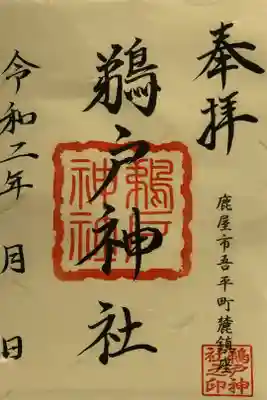 奉拝
鹿屋市吾平町麓鎮座
鵜戸神社
令和二年 月 日
鵜戸神社
鵜戸神社之印